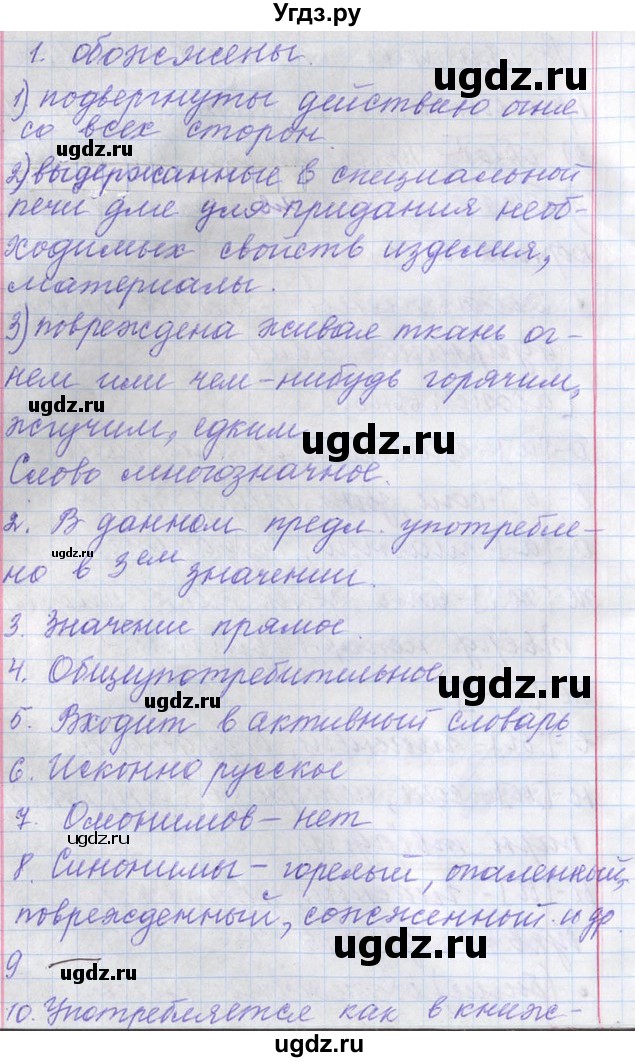 Угдз.ру
1. обожжены.
ugdz.ru
1) подвергнуты действию огня
со всех сторон.
ugdz.ru
2) выдержанные в специальной
печи для придания необ-
ходимых свойств изделия,
материалы.
ugdz.ru
3) повреждена живая ткань ог-
нем или чем-нибудь горячим,
ugdz.ru
жгучим, едким
ugdz.ru
Слово многозначное.
2. В данном предл. употребле-
ugdz.ru
но в 3ем значении.
3. Значение прямое.
4. Общеупотребительное
ugdz.ru
ugdz.ru
5. Входит в активный словарь
6. Исконно русское
7. Омонимов - нет
ugdz.ru
8. Синонимы - горелый, опаленный,
поврежденный, сожженный и др.
ugdz.ru
9
ugdz.ru
10. Употребляется как в книж-
ugdz.ru